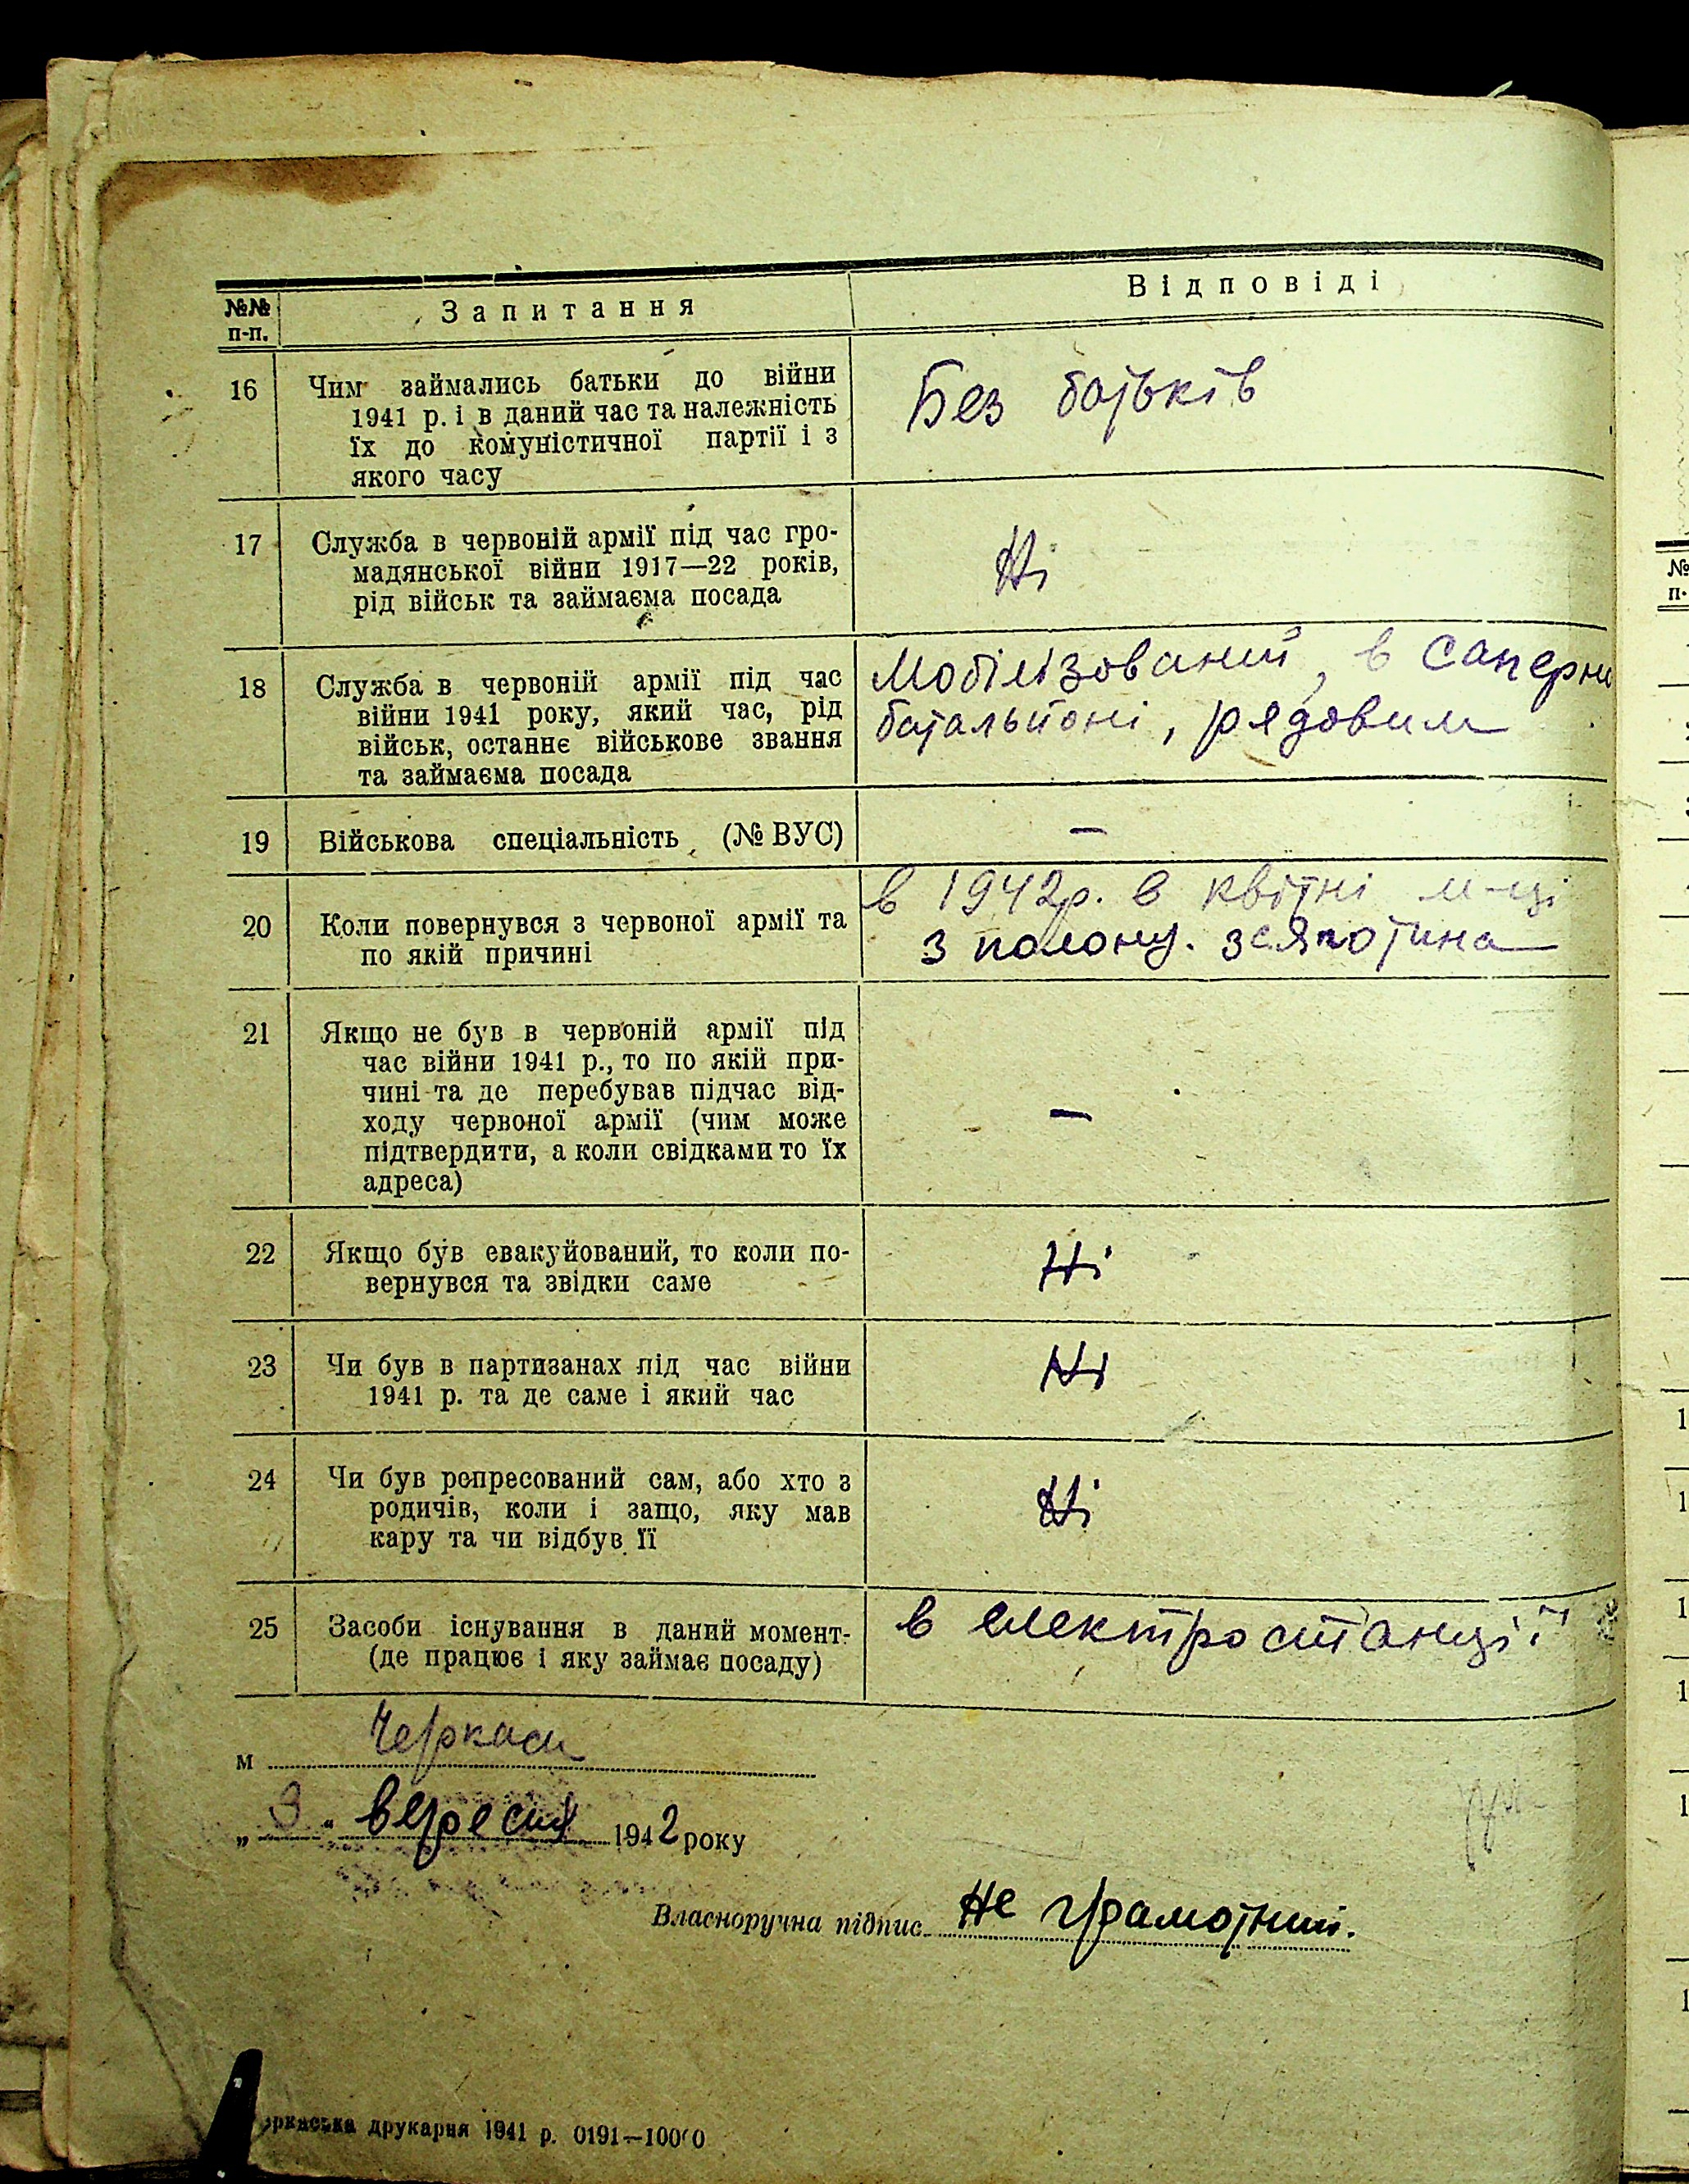 №№ п-п. Запитання Відповіді
16 Чим займались батьки до війни Без батьків
1941 р. і в даний час та належність
їх до комуністичної партії і з
якого часу
17 Служба в червоній армії під час гро- Ні
мадянської війни 1917—22 років,
рід військ та займаєма посада
18 Служба в червоній армії під час Мобілізований, в саперни
війни 1941 року, який час, рід батальйоні, рядовим
військ, останнє військове звання
та займаєма посада
19 Військова спеціальність (№ ВУС) —
20 Коли повернувся з червоної армії та в 1942р. в квітні м-ці
по якій причині з полону.
21 Якщо не був в червоній армії під —
час війни 1941 р., то по якій при-
чині та де перебував підчас від-
ходу червоної армії (чим може
підтвердити, а коли свідками то їх
адреса)
22 Якщо був евакуйований, то коли по- Ні
вернувся та звідки саме
23 Чи був в партизанах під час війни Ні
1941 р. та де саме і який час
24 Чи був репресований сам, або хто з Ні
родичів, коли і защо, яку мав
кару та чи відбув її
25 Засоби існування в даний момент- в електростанції
(де працює і яку займає посаду)
м Черкаси
„3“ вересня 1942 року
Власноручна підпис Не грамотний.
друкарня 1941 р. 0191—10000
№
п-